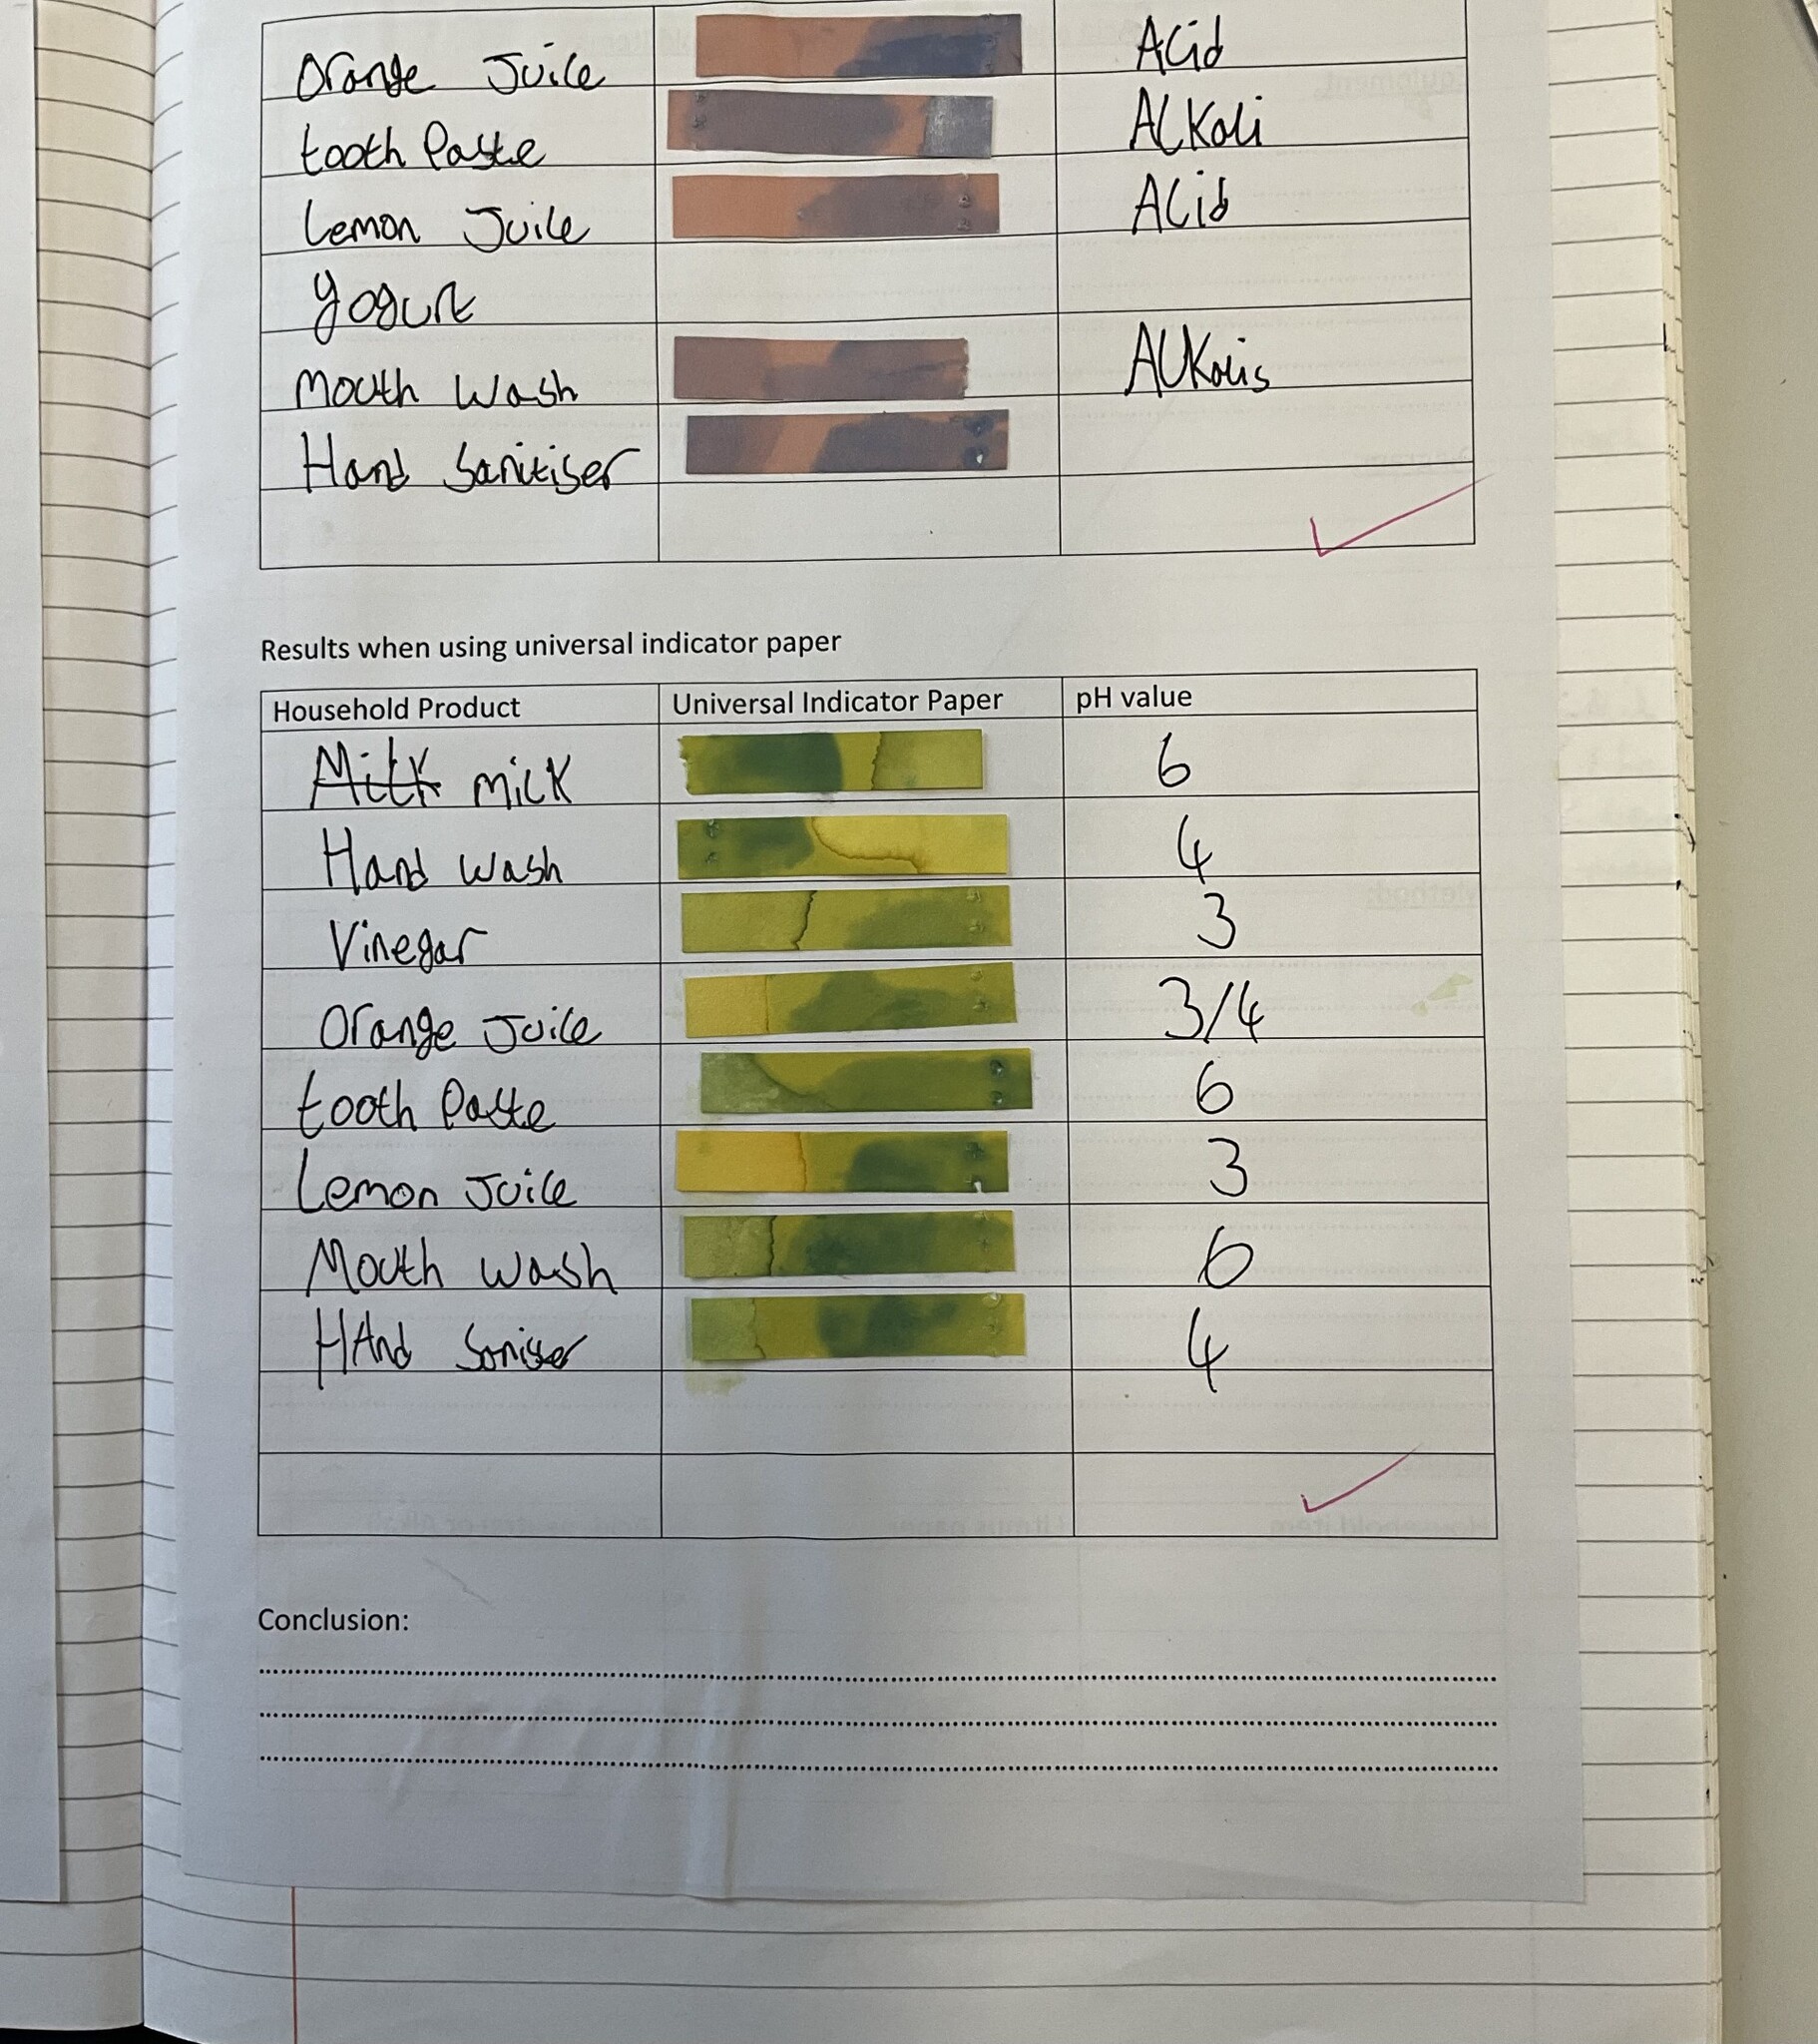 Orange Juice Acid
tooth Paste Alkali
Lemon Juice Acid
Yogurt
Mouth Wash Alkalis
Hand Sanitiser
Results when using universal indicator paper
Household Product Universal Indicator Paper pH value
Milk milk 6
Hand wash 4
Vinegar 3
Orange Juice 3/4
tooth Paste 6
Lemon Juice 3
Mouth wash 6
HAnd 4
Conclusion: